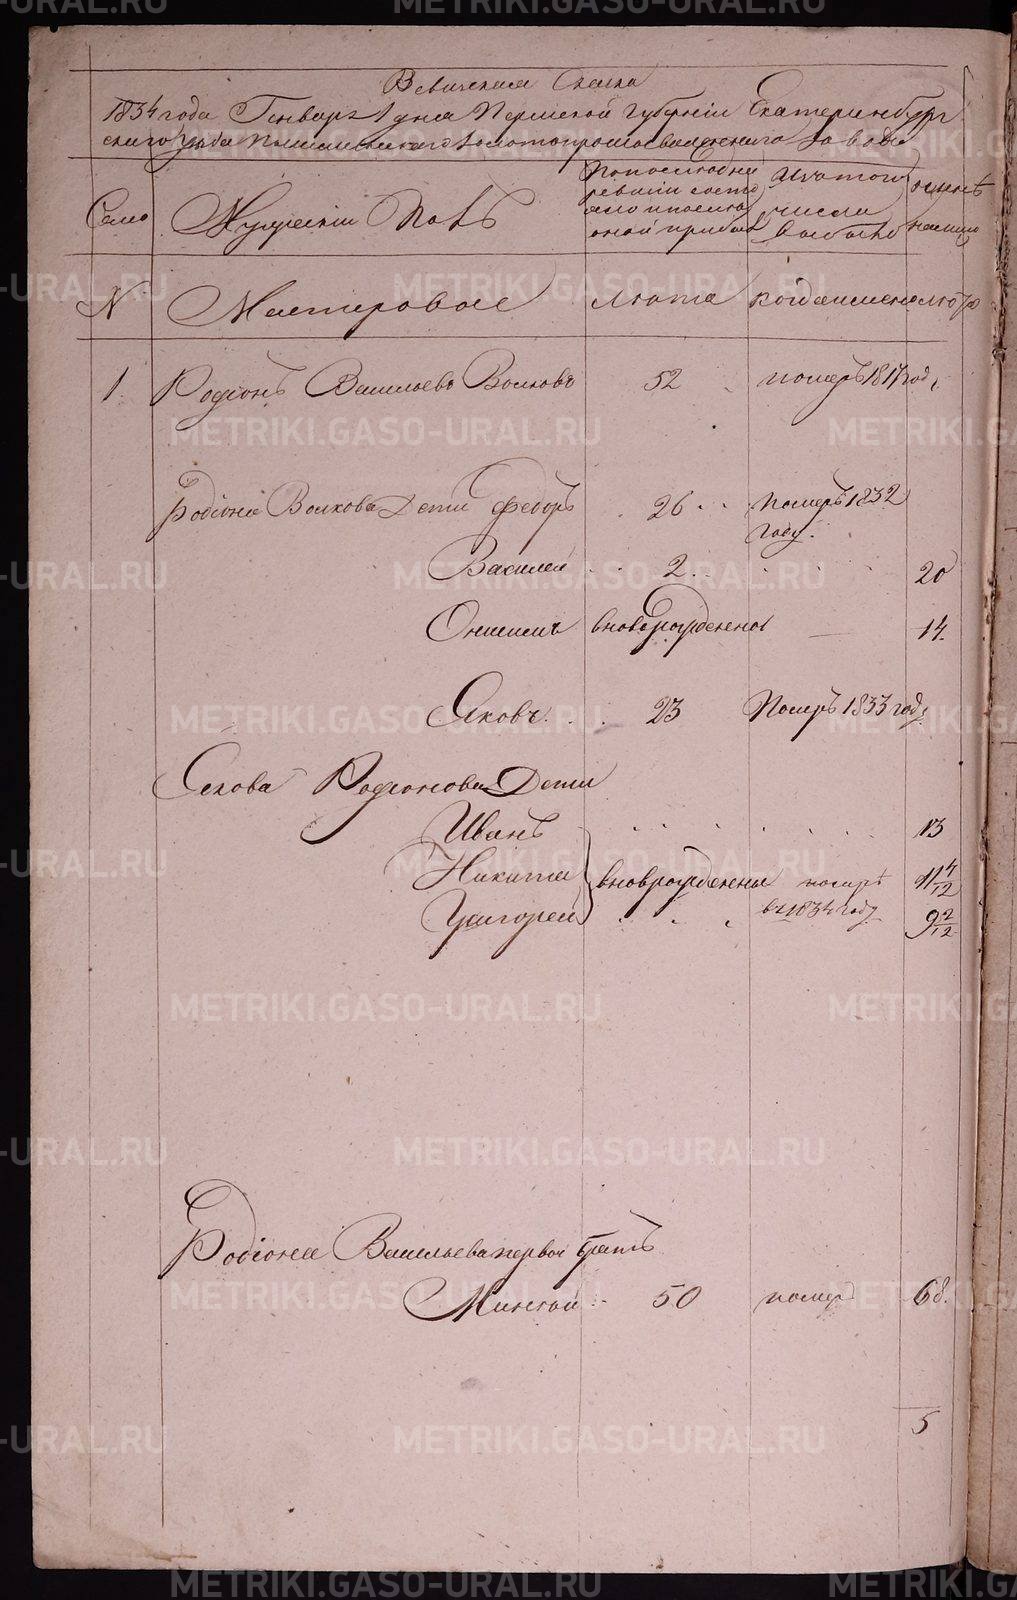 Ревизская Сказка
1834 года Генваря 1 дня Пермской Губернии Екатеринбург
скаго уезда Пышминскаго золотопромысленного завода
Семьи
Мужеский Полъ
По последней
ревизии состо
яло и после
оной прибыло
Из того
числа
выбыло
ныне
налицо
N
Мастеровые
лета
когда именно
лета
1. Родіонъ Васильевъ Волковъ 52 померъ 1817 год.
Родіона Волкова Дети Федоръ 26 Померъ 1832
году.
Василей 2 20
Онисимъ вновьрожденной 14.
Яковъ. 23 Померъ 1833 год.
Якова Родіонова Дети
Иванъ 13
Никита вноврожденны померъ 11 4/12
Григорей в 1834 году 9 2/12
Родіона Васильева первой братъ
Минтой 50 померъ 68.
5
METRIKI.GASO-URAL.RU